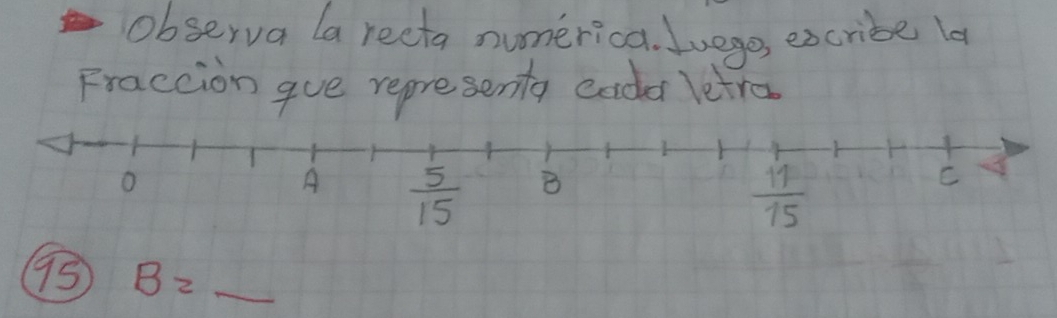 Observa la recta numérica. Luego, escribe la
Fracción que representa cada letra.
0 A 5/15 B 11/15 C
15 B = __